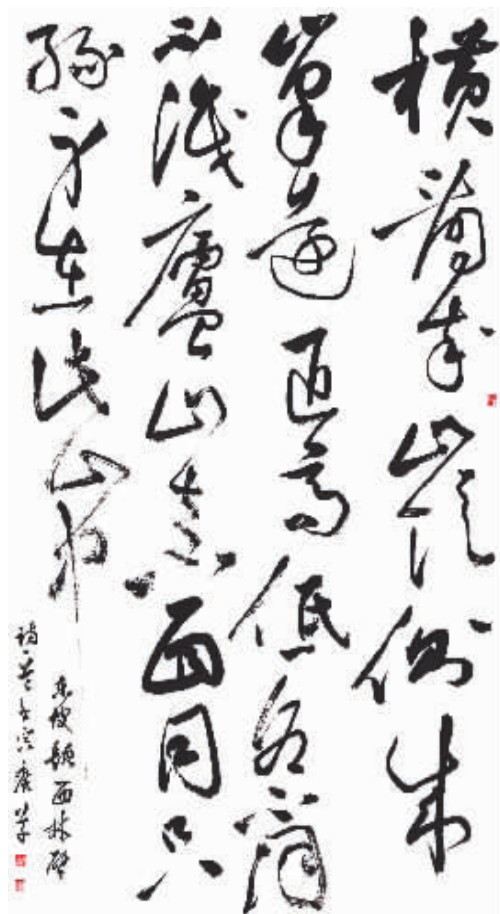 橫看成嶺側成
峯遠近高低各不同
不識廬山真面目只
緣身在此山中
東坡題西林壁
詩一首